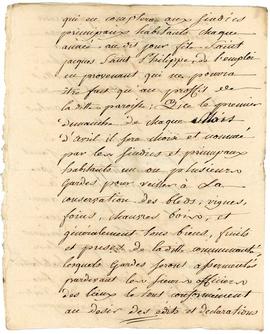 qui en comptera aux sindics
principaux habitants chaque
année au dit jour fête Saint
jacques Saint Philippe; de l'emploi
en provenant qui ne pourra
être fait que au proffit de
la ditte paroisse; Que le premier
Dimanche de chaque Mois
d'avril il sera choisi et nommé
par les sindics et principaux
habitants un ou plusieurs
Gardes pour veiller à La
conservation des bleds, vignes,
foins, chanvres bois, et
généralement tous biens, fruits
et  de la ditte communauté
lesquels Gardes seront assermentés
pardevant les sieurs officiers
des lieux le tout conformément
au desir des edits et declarations